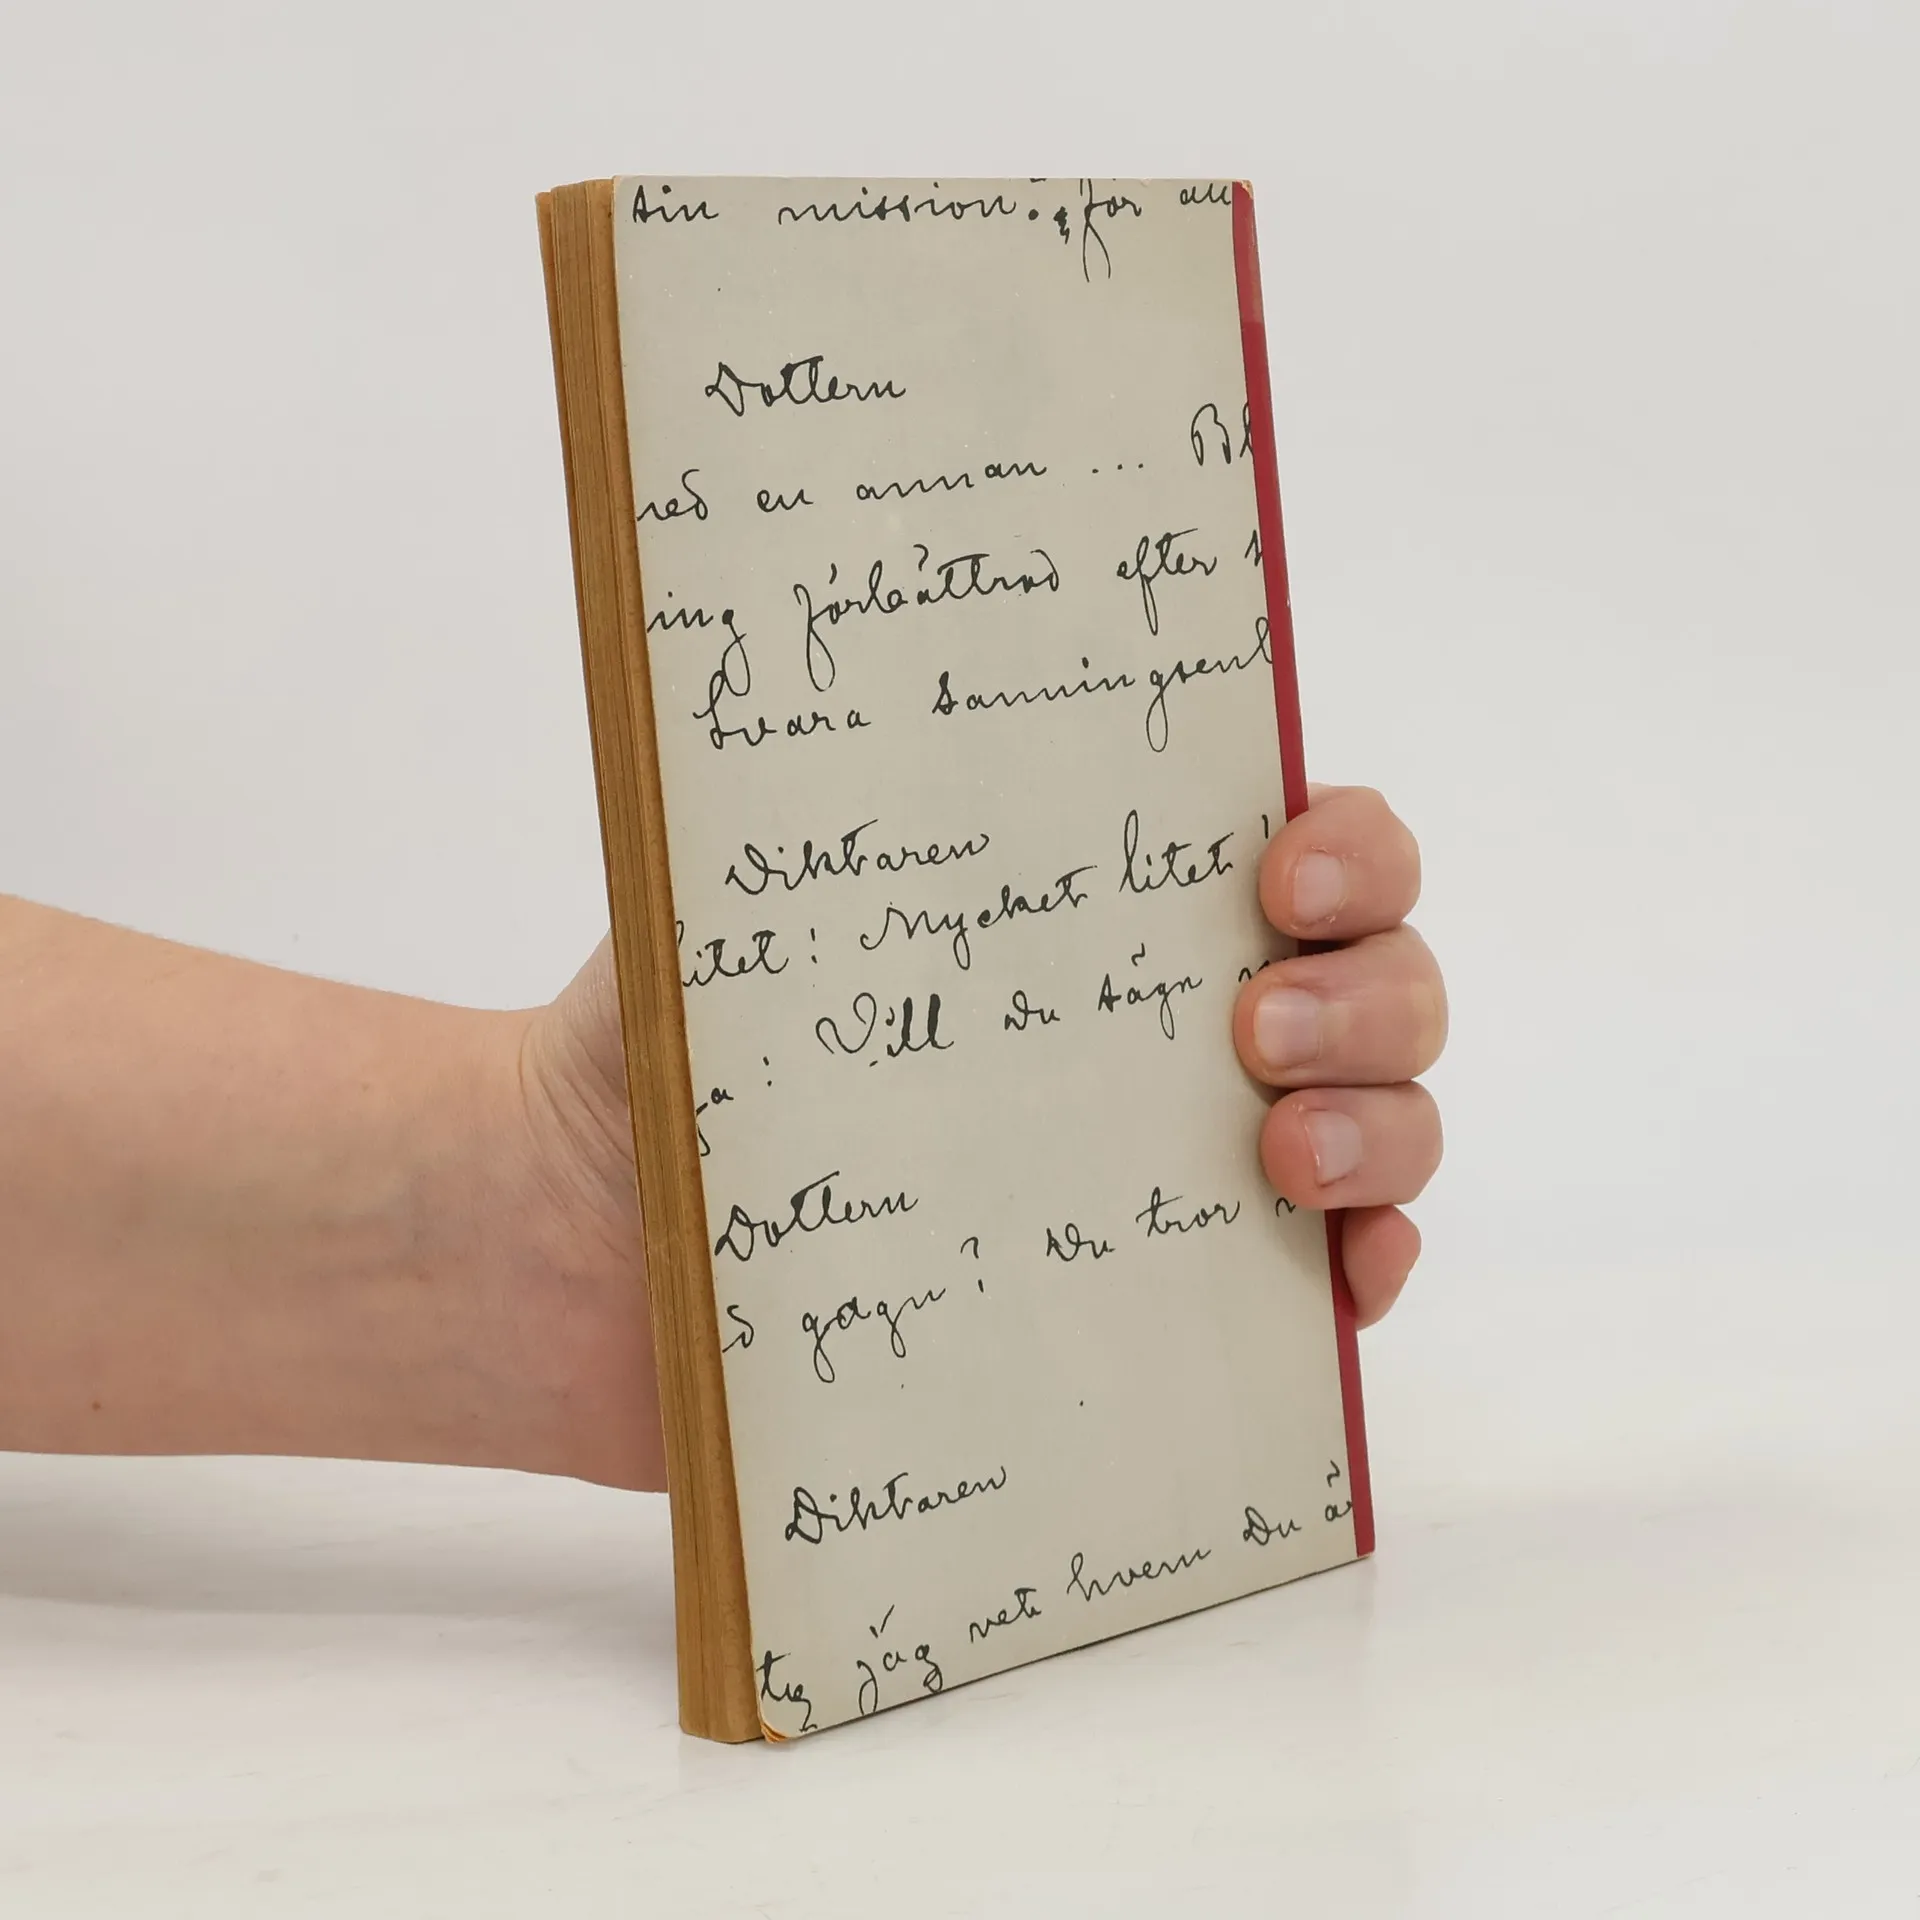 sin mission. för an
Dottern
med en annan ... Bl
ing förbättrad efter
Svara sanningsenl
Diktaren
litet! Mycket litet!
ga: Vill Du säga
Dottern
d gagn? Du tror
Diktaren
tig jag vet hvem Du är